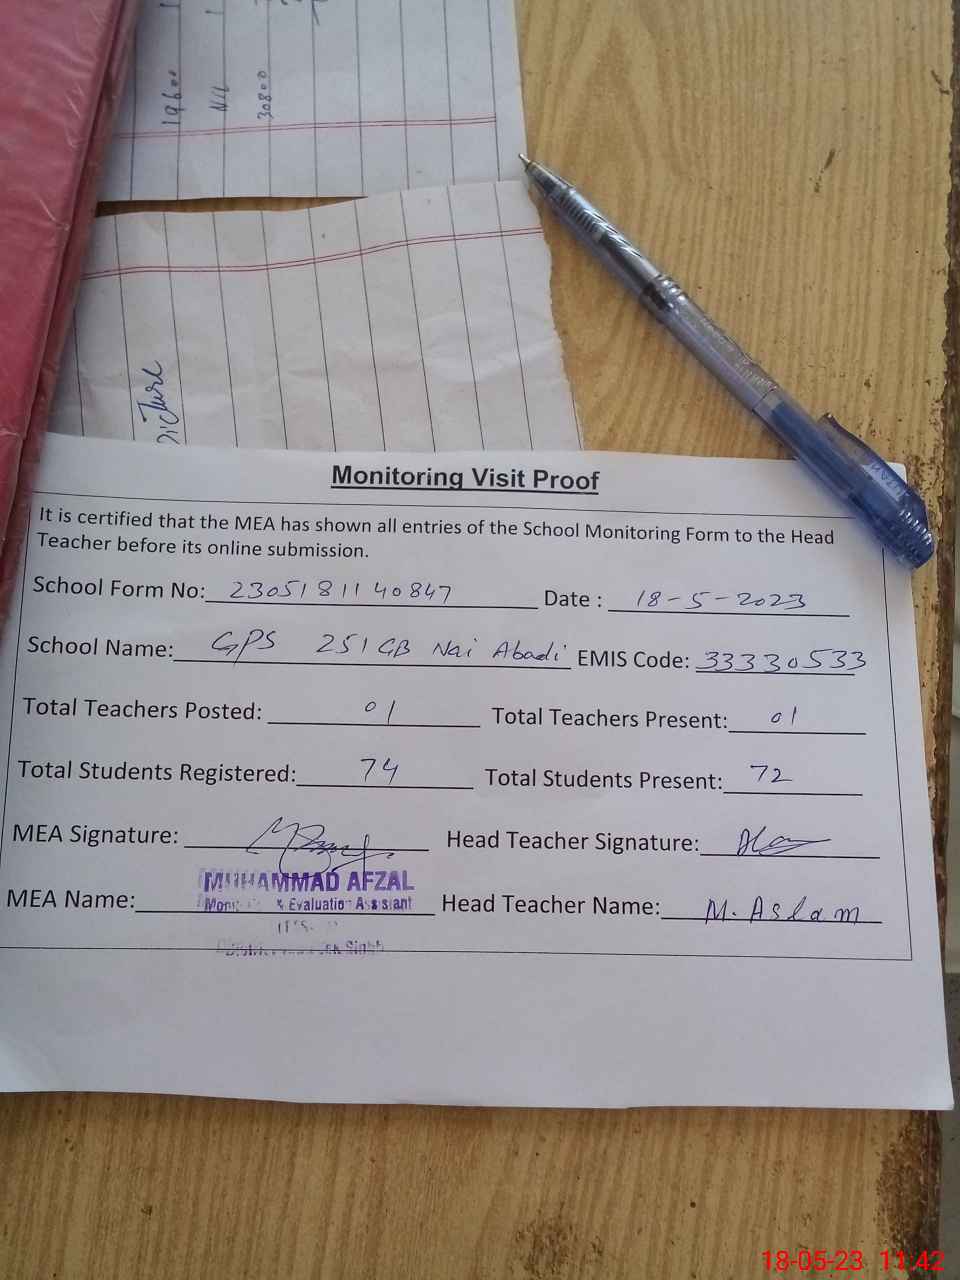 19600
Nil
30800
Picture
Monitoring Visit Proof
It is certified that the MEA has shown all entries of the School Monitoring Form to the Head
Teacher before its online submission.
School Form No: 23051811 40847 Date : 18-5-2023
School Name: GPS 251 GB Nai Abadi EMIS Code: 33330533
Total Teachers Posted: 01 Total Teachers Present: 01
Total Students Registered: 74 Total Students Present: 72
MEA Signature: Head Teacher Signature:
MUHAMMAD AFZAL
MEA Name: & Evaluation Assistant Head Teacher Name: M. Aslam
18-05-23 11:42